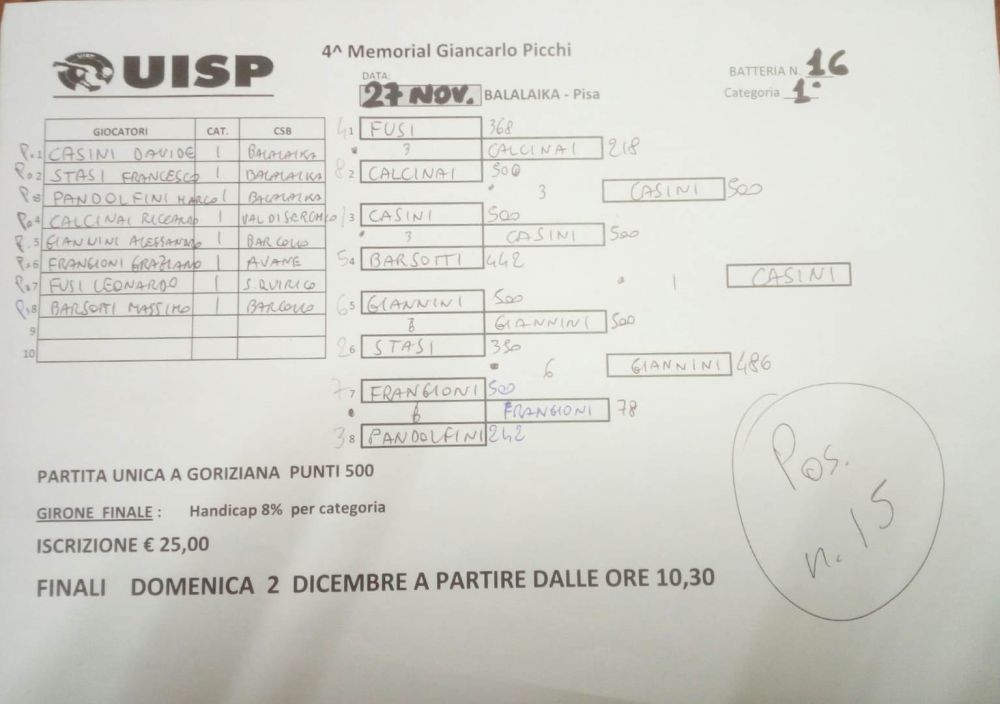 UISP
4^ Memorial Giancarlo Picchi
DATA:
27 NOV. BALALAIKA - Pisa
BATTERIA N. 16
Categoria 1°
GIOCATORI CAT. CSB
1 CASINI DAVIDE 1 BALALAIKA
2 STASI FRANCESCO 1 BALALAIKA
3 PANDOLFINI MARCO 1 BALALAIKA
4 CALCINAI RICCARDO 1 VALDISERCHIO
5 GIANNINI ALESSANDRO 1 BARCOLLO
6 FRANGIONI GRAZIANO 1 AVANE
7 FUSI LEONARDO 1 S. QUIRICO
8 BARSOTTI MASSIMO 1 BARCOLLO
9
10
4 1 FUSI 368
3 CALCINAI 218
8 2 CALCINAI 500
3 CASINI 500
1 3 CASINI 500
3 CASINI 500
5 4 BARSOTTI 442
1 CASINI
6 5 GIANNINI 500
6 GIANNINI 500
2 6 STASI 390
6 GIANNINI 486
7 7 FRANGIONI 500
6 FRANGIONI 78
3 8 PANDOLFINI 242
PARTITA UNICA A GORIZIANA PUNTI 500
GIRONE FINALE : Handicap 8% per categoria
ISCRIZIONE € 25,00
FINALI DOMENICA 2 DICEMBRE A PARTIRE DALLE ORE 10,30
Pos.
n. 15